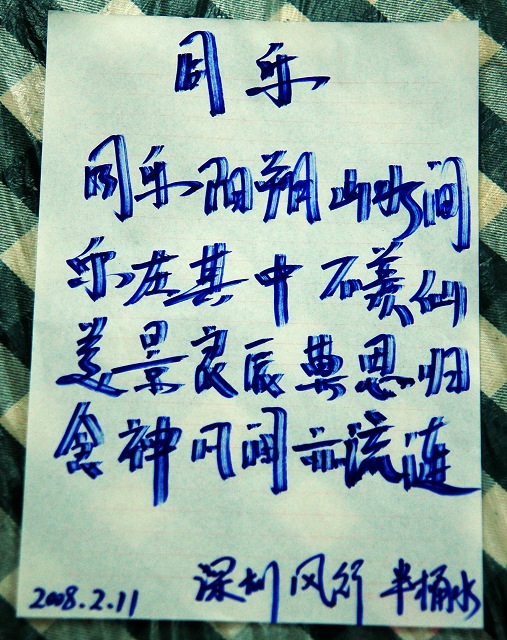 同乐
同乐阳朔山水间
乐在其中不羡仙
美景良辰莫思归
食神凡间亦流涟
2008.2.11 深圳风行 半桶水